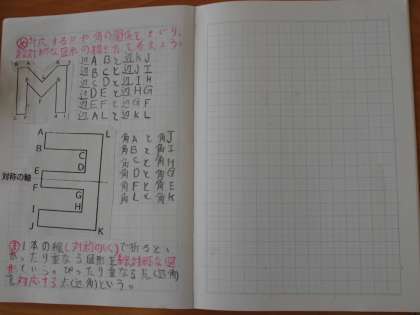 め 対応する点や角の関係をしらべ、
線対称な図形の性質をまとめよう。
辺ABと辺KJ
辺BCと辺JI
辺CDと辺IH
辺DEと辺HG
辺EFと辺GF
辺ALと辺KL
A
L
B
C
D
対称の軸
E
F
G
H
I
J
K
角Aと角J
角Bと角I
角Cと角H
角Dと角G
角Fと角E
角Lと角K
ま 1本の線(対称のじく)で折ると、
ぴったり重なる図形を線対称な図
形という。ぴったり重なる点(辺角)
を対応する点(辺角)という。